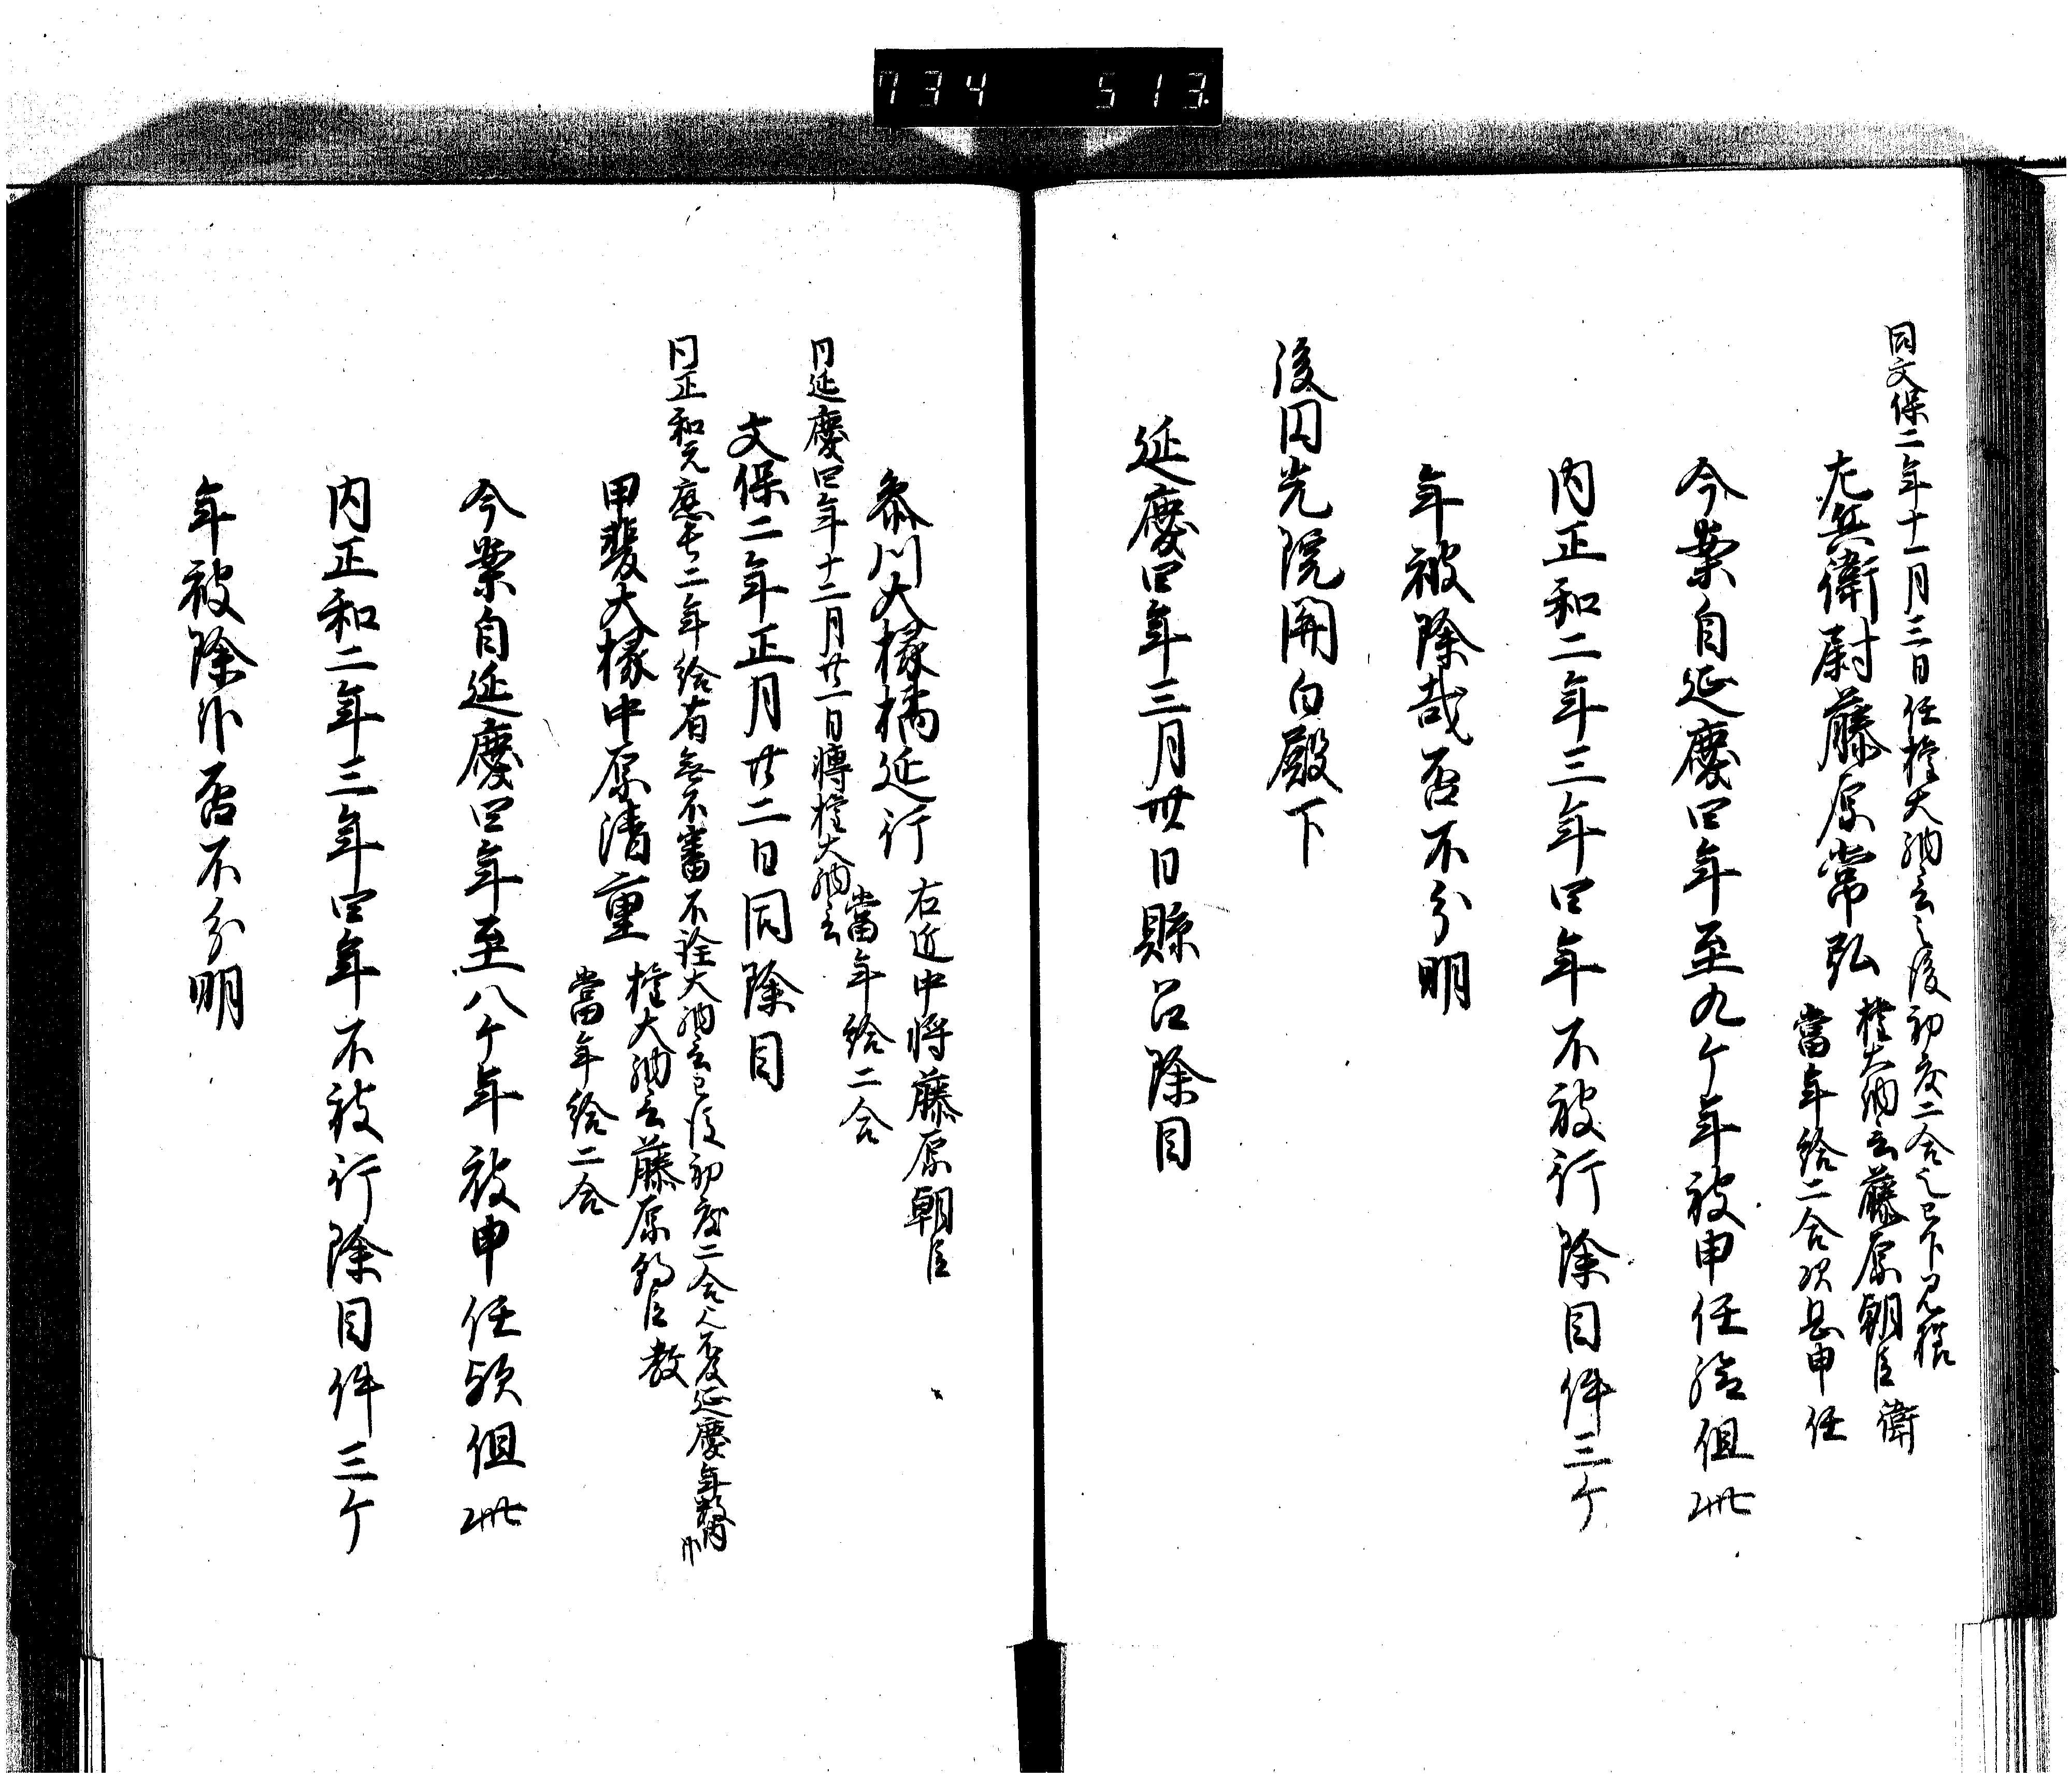 734 513
同文保二年十一月三日任権大納言之後初度二合之已下見裾
左兵衛尉藤原常弘
権大納言藤原朝臣衛
當年給二合以息申任
今案自延慶四年至九ケ年被申任給但此
内正和二年三年四年不被行除目件三ケ
年被除哉否不分明
後円光院関白殿下
延慶四年三月卅日縣召除目
参川大掾橘延行
右近中将藤原朝臣
當年給二合
同延慶四年十二月廿一日轉権大納言
文保二年正月廿二日同除目
同正和元應長二年給有無不審不詮大納言已後初度二合之不及延慶年数内
甲斐大掾中原清重
権大納言藤原朝臣教
當年給二合
今案自延慶四年至八ケ年被申任欤但此
内正和二年三年四年不被行除目件三ケ
年被除否不分明